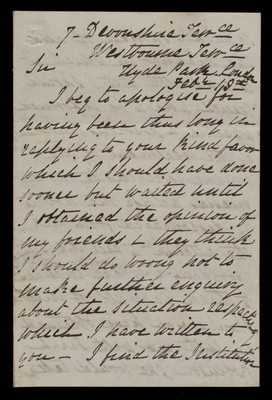 7- Devonshire Terce
Westbourne Terce
Hyde Park London
Sir Febr 13th
I beg to apologise for
having been thus long in
replying to your kind favor
which I should have done
sooner but waited until
I obtained the opinion of
my friends & they think
I should do wrong not to
make further enquiry
about the situation respecting
which I have written to
you - I find the Institution